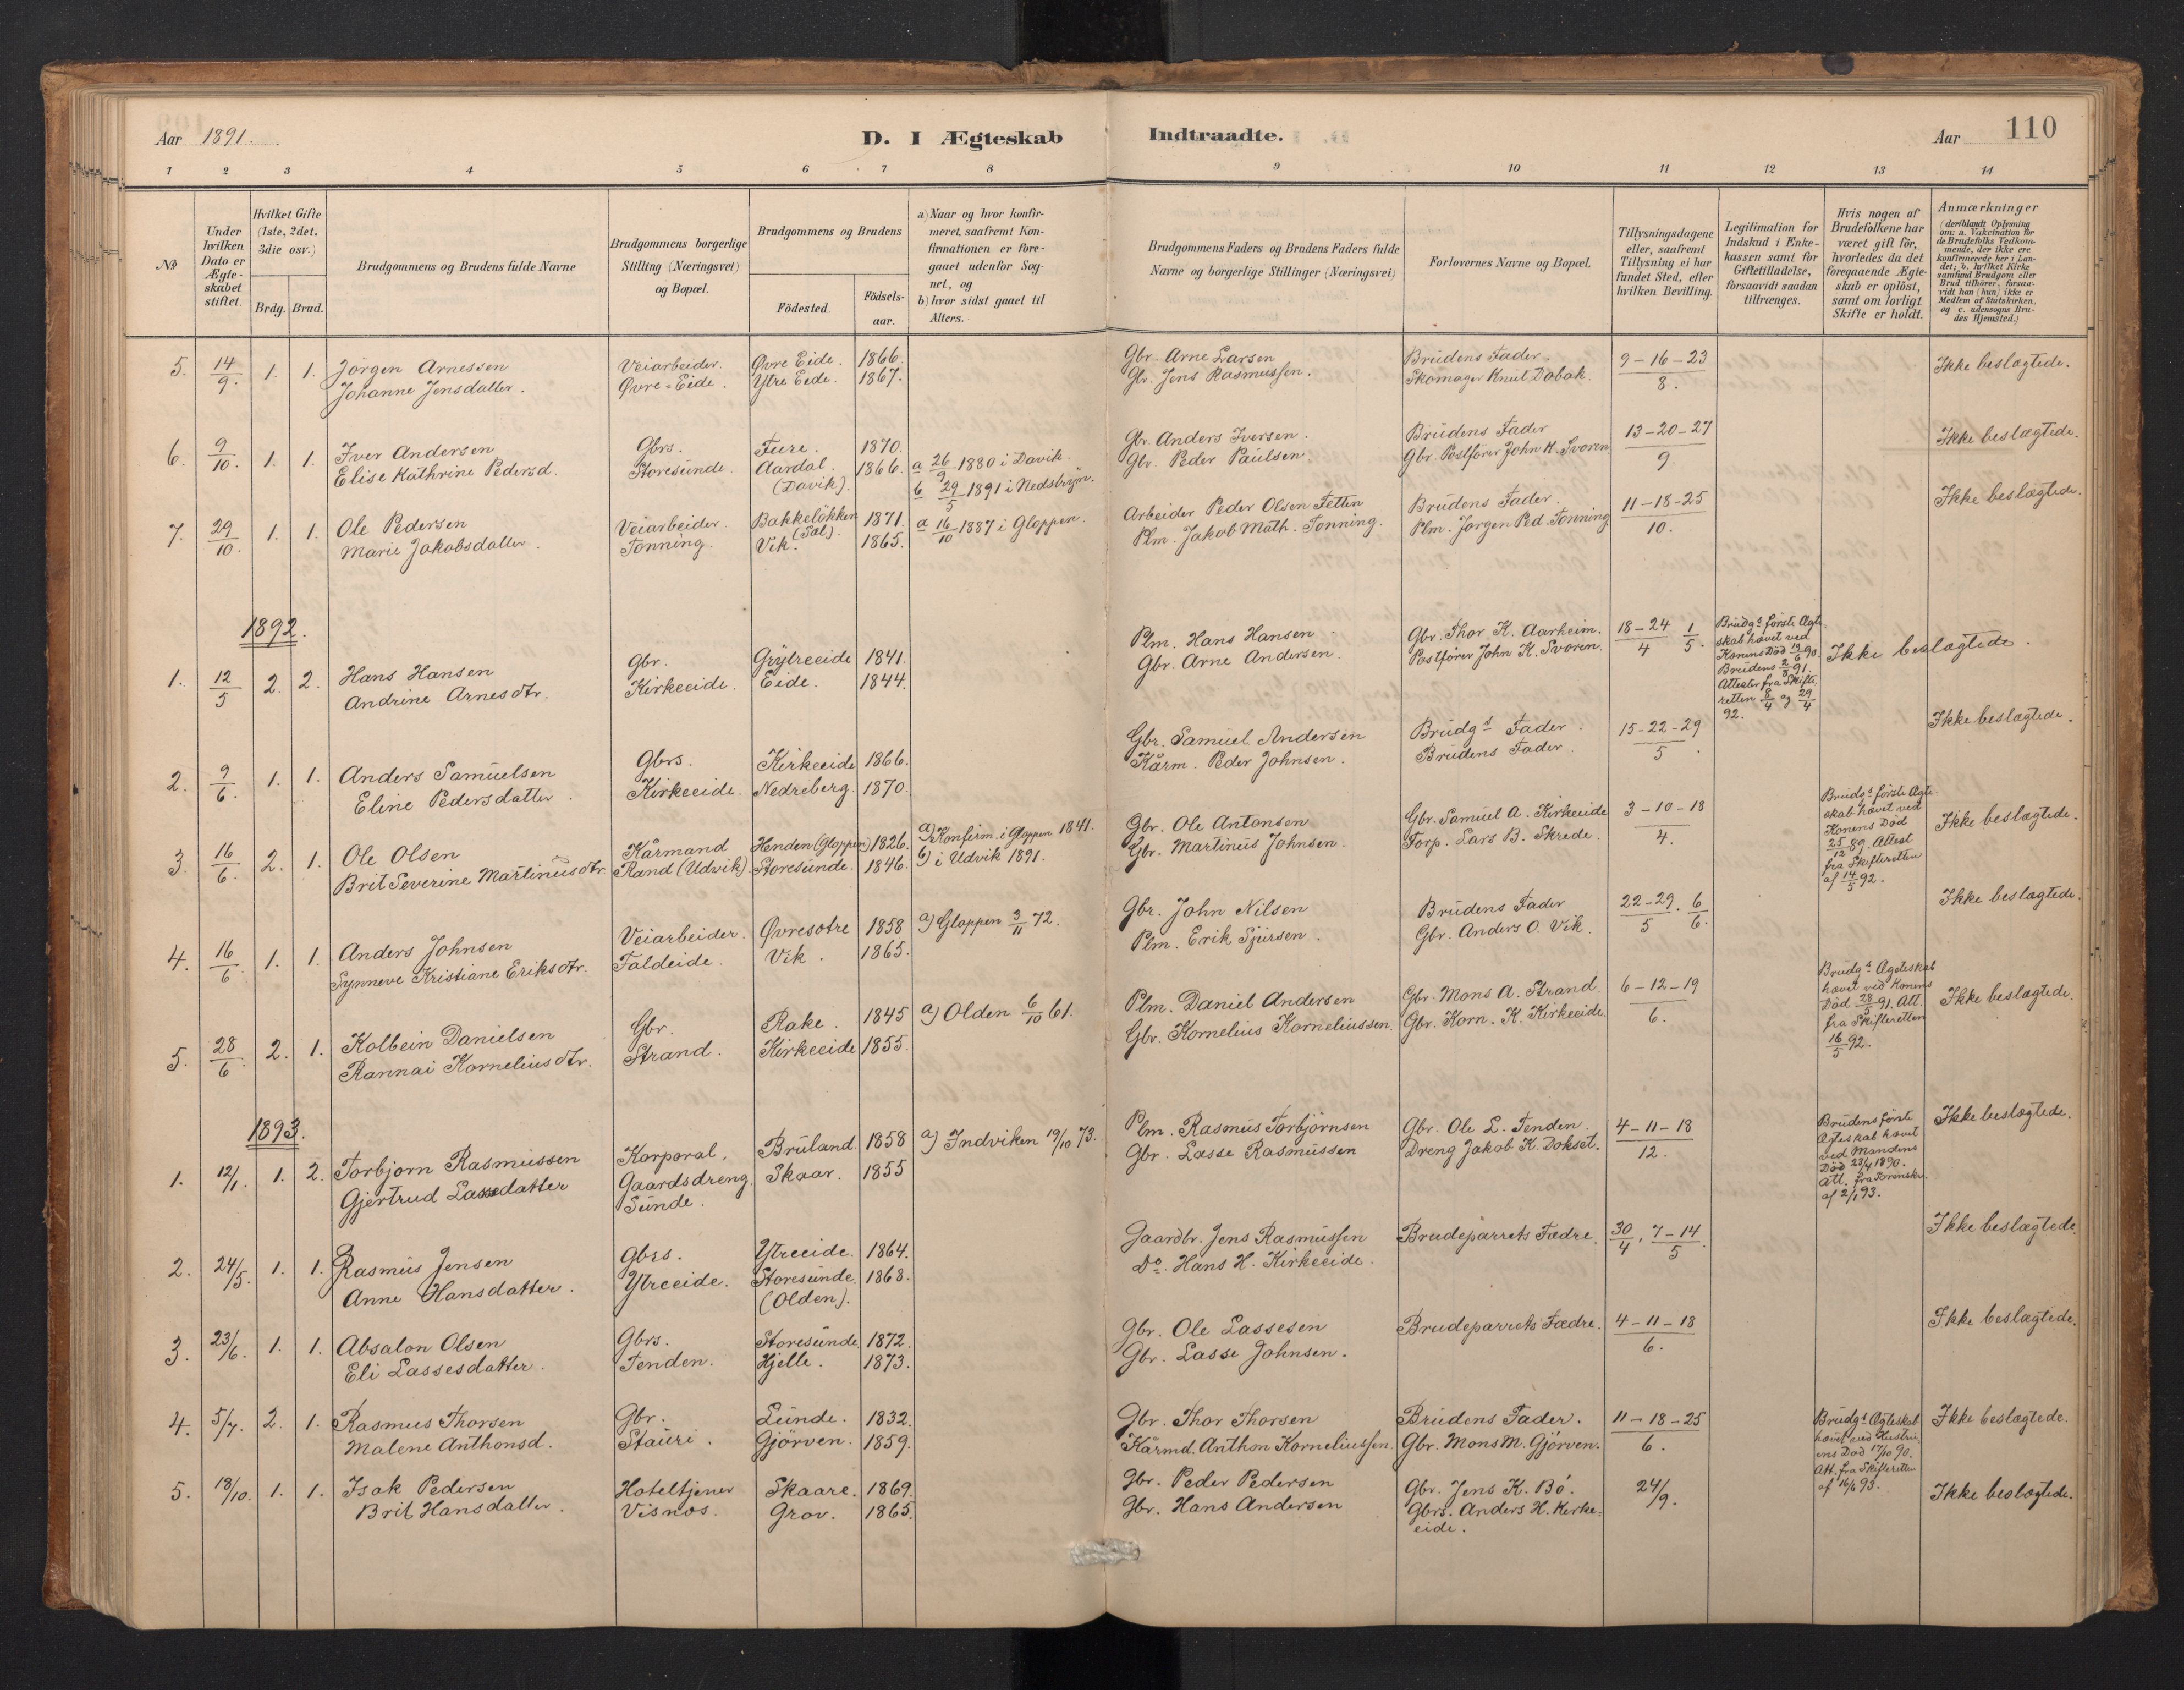 Aar 1891.
D. I Ægteskab Indtraadte.
Aar
110
1 2 3 4 5 6 7 8 9 10 11 12 13 14
No
Under hvilken Dato er Ægteskabet stiftet.
Hvilket Gifte (1ste, 2det, 3die osv.)
Brdg. Brud.
Brudgommens og Brudens fulde Navne
Brudgommens borgerlige Stilling (Næringsvei) og Bopæl.
Brudgommens og Brudens
Födested.
Födselsaar.
a) Naar og hvor konfirmeret, saafremt Konfirmationen er foregaaet udenfor Sognet, og
b) hvor sidst gaaet til Alters.
Brudgommens Faders og Brudens Faders fulde Navne og borgerlige Stillinger (Næringsvei)
Forlovernes Navne og Bopæl.
Tillysningsdagene eller, saafremt Tillysning ei har fundet Sted, efter hvilken Bevilling.
Legitimation for Indskud i Enkekassen samt for Giftetilladelse, forsaavidt saadan tiltrænges.
Hvis nogen af Brudefolkene har været gift för, hvorledes da det foregaaende Ægteskab er oplöst, samt om lovligt Skifte er holdt.
Anmærkninger
(deriblandt Oplysning om: a. Vakcination for de Brudefolks Vedkommende, der ikke ere konfirmerede her i Landet; b. hvilket Kirkesamfund Brudgom eller Brud tilhörer, forsaavidt han (hun) ikke er Medlem af Statskirken, og c. udensogns Brudes Hjemsted.)
5. 14/9. 1. 1. Jörgen Arnessen Veiarbeider. Øvre Eide. 1866. Gbr. Arne Larsen Brudens Fader. 9-16-23/8. Ikke beslægtede.
Johanne Jensdatter. Øvre-Eide. Ytre Eide. 1867. Gb. Jens Rasmussen. Skomager Knut Dabak.
6. 9/10. 1. 1. Iver Andersen Gbrs. Fure. 1870. Gb. Anders Iversen. Brudens Fader 13-20-27/9. Ikke beslægtede.
Elise Kathrine Pedersd. Storesunde. Aardal. (Davik). 1866. a 26/9 1880 i Davik. Gbr. Peder Paulsen Gbr. Postfører John K. Svoren.
b 29/5 1891 i Nedstryn.
7. 29/10. 1. 1. Ole Pedersen Veiarbeider. Bakkeløkken (Sæl) 1871. a 16/10 1887 i Gloppen. Arbeider Peder Olsen Fetten Brudens Fader. 11-18-25/10. Ikke beslægtede.
Marie Jakobsdatter. Tonning. Vik. 1865. Plm. Jakob Math. Tonning. Plm. Jørgen Ped. Tonning
1892.
1. 12/5 2. 2. Hans Hansen Gbr. Grytreeide 1841. Plm. Hans Hansen Gbr. Thor K. Aarheim. 18-24/4 1/5. Ikke beslægtede.
Andrine Arnesdtr. Kirkeeide. Eide. 1844. Gbr. Arne Andersen. Postfører John K. Svoren.
Brudgs første Ægteskab hævet ved Konens Død 19/6 90. Brudens 2/3 91. Attester fra Skifteretten 8/4 og 29/4 92.
2. 9/6. 1. 1. Anders Samuelsen Gbrs. Kirkeeide 1866. Gbr. Samuel Andersen Brudgs Fader. 15-22-29/5. Ikke beslægtede.
Eline Pedersdatter. Kirkeeide. Nedreberg. 1870. Kårm. Peder Johnsen. Brudens Fader.
3. 16/6. 2. 1. Ole Olsen Kårmand Henden (Gloppen) 1826. a) Konfirm. i Gloppen 1841. Gbr. Ole Antonsen Gbr. Samuel A. Kirkeeide 3-10-18/4. Ikke beslægtede.
Brit Severine Martinusdtr. Rand (Udvik). Storesunde. 1846. b) i Udvik 1891. Gbr. Martinus Johnsen. Forp. Lars B. Skrede.
Brudgs første Ægteskab hævet ved Konens Død 25/12 89. Attest fra Skifteretten af 14/5 92.
4. 16/6. 1. 1. Anders Johnsen Veiarbeider. Øvresotre 1858 a) Gloppen 3/11 72. Gbr. John Nilsen Brudens Fader 22-29/5. 6/6. Ikke beslægtede.
Synneve Kristiane Eriksdtr. Faldeide. Vik. 1865. Plm. Erik Sjursen. Gbr. Anders O. Vik.
5. 28/6. 2. 1. Kolbein Danielsen Gbr. Rake. 1845 a) Olden 6/10 61. Plm. Daniel Andersen Gbr. Mons A. Strand. 6-12-19/6. Ikke beslægtede.
Rannai Kornelius dtr. Strand. Kirkeeide 1855. Gbr. Kornelius Korneliussen. Gbr. Korn. K. Kirkeeide.
Brudgs Ægteskab hævet ved Konens Død 28/5 91. Att. fra Skifteretten 16/5 92.
1893.
1. 12/1. 1. 2. Torbjørn Rasmussen Korporal, Bruland 1858 a) Indviken 19/10 73. Plm. Rasmus Torbjörnsen Gbr. Ole L. Tenden. 4-11-18/12. Ikke beslægtede.
Gjertrud Lassedatter Gaardsdreng. Sunde. Skaar. 1855 Gbr. Lasse Rasmussen Dreng Jakob K. Dokset.
Brudens første Ægteskab hævet ved Mandens Død 23/4 1890. Att. fra Sorenskr. af 2/1 93.
2. 24/5. 1. 1. Rasmus Jensen Gbrs. Ytreeide. 1864. Gaardbr. Jens Rasmussen Brudeparrets Fædre. 30/4, 7-14/5. Ikke beslægtede.
Anne Hansdatter. Ytreeide. Storesunde. (Olden). 1868. Do. Hans H. Kirkeeide.
3. 23/6. 1. 1. Absalon Olsen Gbrs. Storesunde 1872. Gbr. Ole Lassesen Brudeparrets Fædre. 4-11-18/6. Ikke beslægtede.
Eli Lassesdatter. Tenden. Hjelle. 1873. Gbr. Lasse Johnsen.
4. 5/7. 2. 1. Rasmus Thorsen Gbr. Lunde. 1832. Gbr. Thor Thorsen Brudens Fader. 11-18-25/6. Ikke beslægtede.
Malene Anthonsd. Stauri. Gjörven. 1859. Kårmd. Anthon Korneliussen. Gbr. Mons M. Gjörven.
Brudgs Ægteskab hævet ved Hustruens Død 17/10 90. Att. fra Skifteretten af 16/6 93.
5. 18/10. 1. 1. Isak Pedersen Hoteltjener Skaare. 1869. Gbr. Peder Pedersen Gbr. Jens K. Bö. 24/9. Ikke beslægtede.
Brit Hansdatter. Visnes. Grov. 1865. Gbr. Hans Andersen Gbrs. Anders H. Kirkeeide.